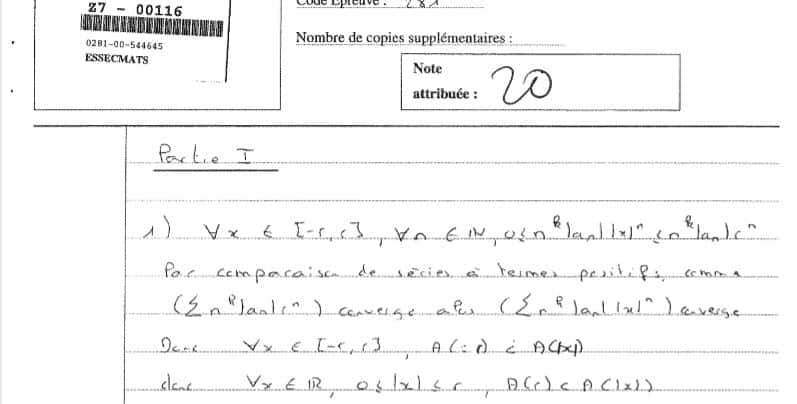 Z7 - 00116
0281-00-544645
ESSECMATS
Code Epreuve : 281
Nombre de copies supplémentaires :
Note
attribuée : 20
Partie I
1) ∀x ∈ [-r, r], ∀n ∈ IN, 0 ≤ n^k |a_n| |x|^n ≤ n^k |a_n| r^n
Par comparaison de séries à termes positifs, comme
(Σ n^k |a_n| r^n) converge alors (Σ n^k |a_n| |x|^n) converge
Donc ∀x ∈ [-r, r],
donc ∀x ∈ IR, 0 ≤ |x| ≤ r, A(r) < A(|x|)